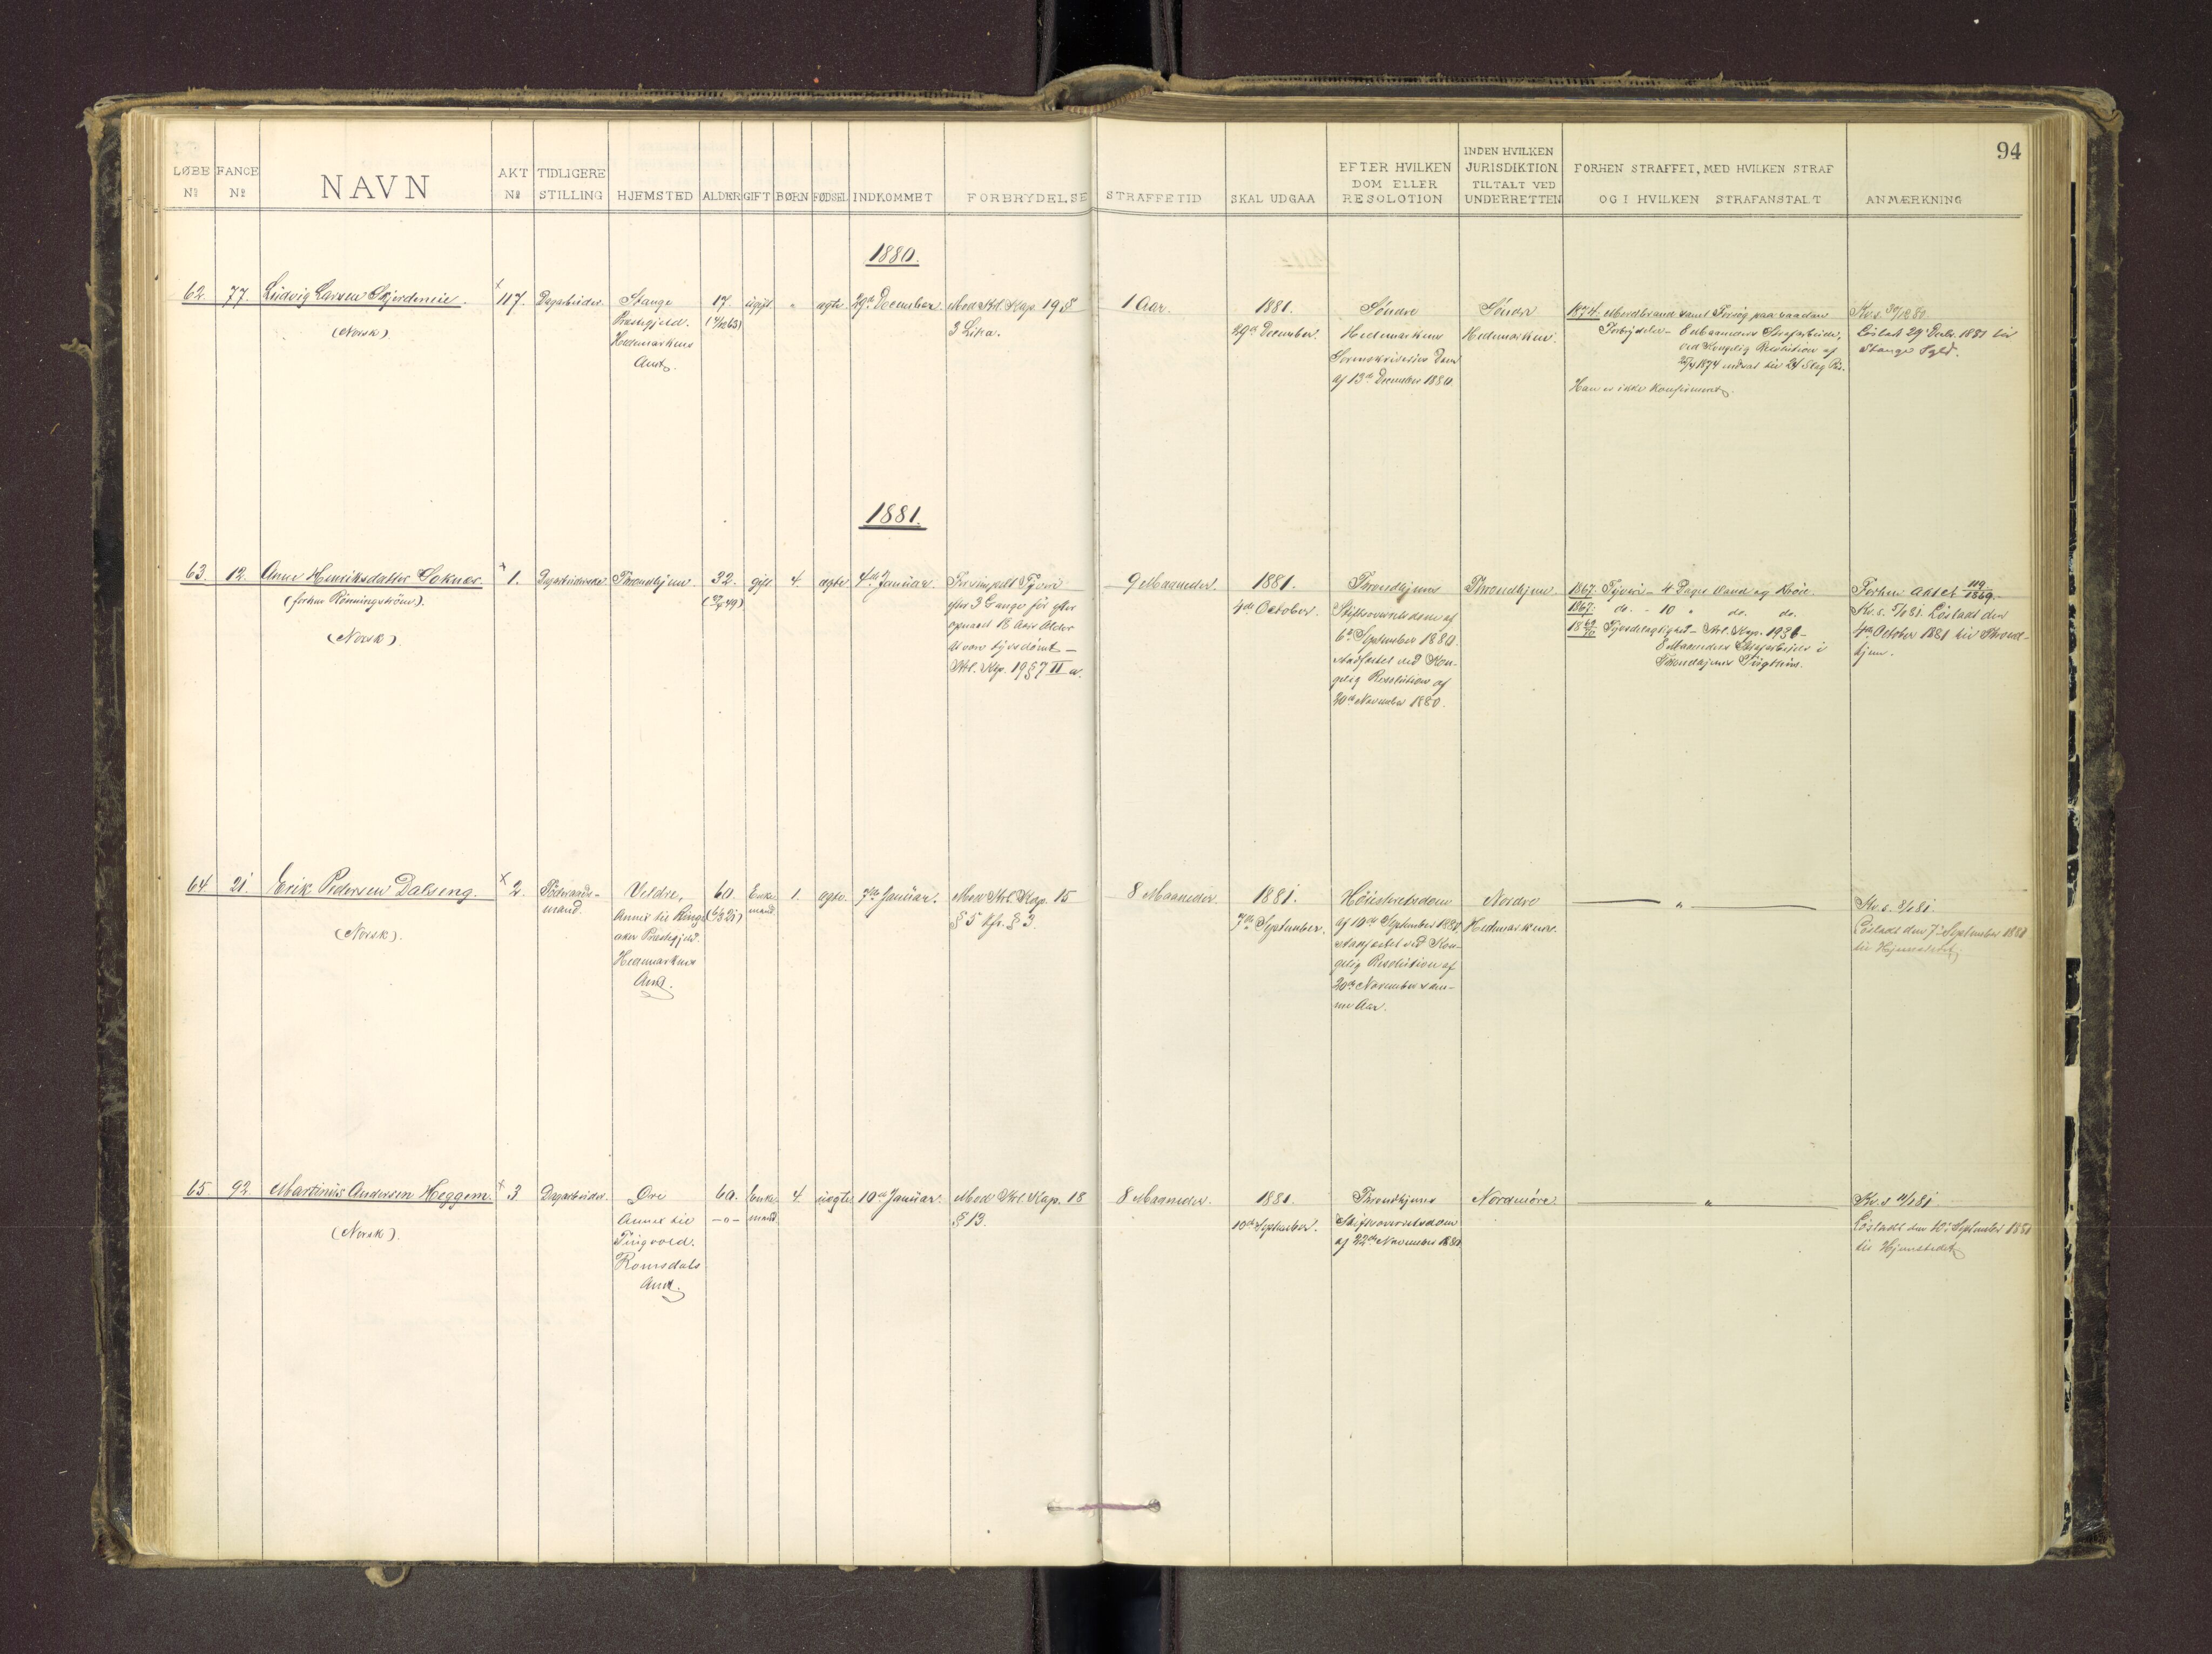 94
LØBE Nº
FANGE Nº
NAVN
AKT Nº
TIDLIGERE STILLING
HJEMSTED
ALDER
GIFT
BØRN
FØDSEL
INDKOMMET
FORBRYDELSE
STRAFFETID
SKAL UDGAA
EFTER HVILKEN DOM ELLER RESOLOTION
INDEN HVILKEN JURISDIKTION TILTALT VED UNDERRETTEN
FORHEN STRAFFET, MED HVILKEN STRAF OG I HVILKEN STRAFANSTALT
ANMÆRKNING
1880.
62.
77.
Ludvig Larsen
(Norsk)
117.
Dagarbeider.
Stange
Præstegjeld.
Hedemarkens
Amt.
17
ugift
"
ægte
29de December.
Mod Strl. Kap. 19 §
3 Litra.
1 Aar.
1881.
29de December.
Søndre
Hedemarkens
Sorenskriveries Dom
af 13de December 1880.
Søndre
Hedemarken.
1874. Mordbrand samt Forsøg paa saadan
Forbrydelse - 8 Maaneders Strafarbeide,
ved Kongelig Resolution af
1874 nedsat til 24 Slag Ris.
Han er ikke konfirmeret.
Løsladt 29de Decbr. 1881 til
Stange Pgld.
1881.
63.
12.
Anne Henriksdatter Soknes.
(forhen Rønningstrøm).
(Norsk)
1.
Throndhjem
32.
gift
4
ægte
4de Januar.
Forsimpelt Tyveri
efter 3 Gange før efter
opnaaet 18 Aars Alder
at være tyvsdømt -
Strl. Kap. 19 § 7 II
9 Maaneder.
1881.
4de October.
Throndhjems
Stiftsoverretsdom af
6te September 1880.
stadfæstet ved Kon-
gelig Resolution af
20de November 1880.
Throndhjem.
1867. Tyveri - 4 Dages Vand og Brød.
1867. do. - 10 " do. do.
18 69/70 Tyvsdelagtighed - Strl. Kap.
8 Maaneders Strafarbeide i
Throndhjems Tugthus.
Forhen Akt et 119/1869.
Løsladt den
4de October 1881 til Thrond-
hjem.
64.
21.
Erik Pedersen Dalseng.
(Norsk).
2.
Føderaads-
mand.
Veldre,
Annex til Ringe-
aker Præstegjeld.
Hedemarkens
Amt.
60.
Enke-
mand.
1.
ægte.
7de Januar.
Mod Strl. Kap. 15
§ 5 jfr. § 3.
8 Maaneder.
1881.
7de September.
Høiesteretsdom
af 10de September 1880,
stadfæstet ved Kon-
gelig Resolution af
20de November sam-
me Aar.
Nordre
Hedemarkens.
"
Løsladt den 7de September 1881
til Hjemstedet
65.
92.
Martinus Andersen Heggem.
(Norsk).
3
Dagarbeider.
Øre
Annex til
Tingvold.
Romsdals
Amt.
60.
-"-
Enke-
mand.
4.
uægte
10de Januar.
Mod Strl. Kap. 18
§ 13.
8 Maaneder.
1881.
10de September.
Throndhjems
Stiftsoverretsdom
af 22de November 1880.
Nordmøre.
"
Løsladt den 10de September 1881
til Hjemstedet